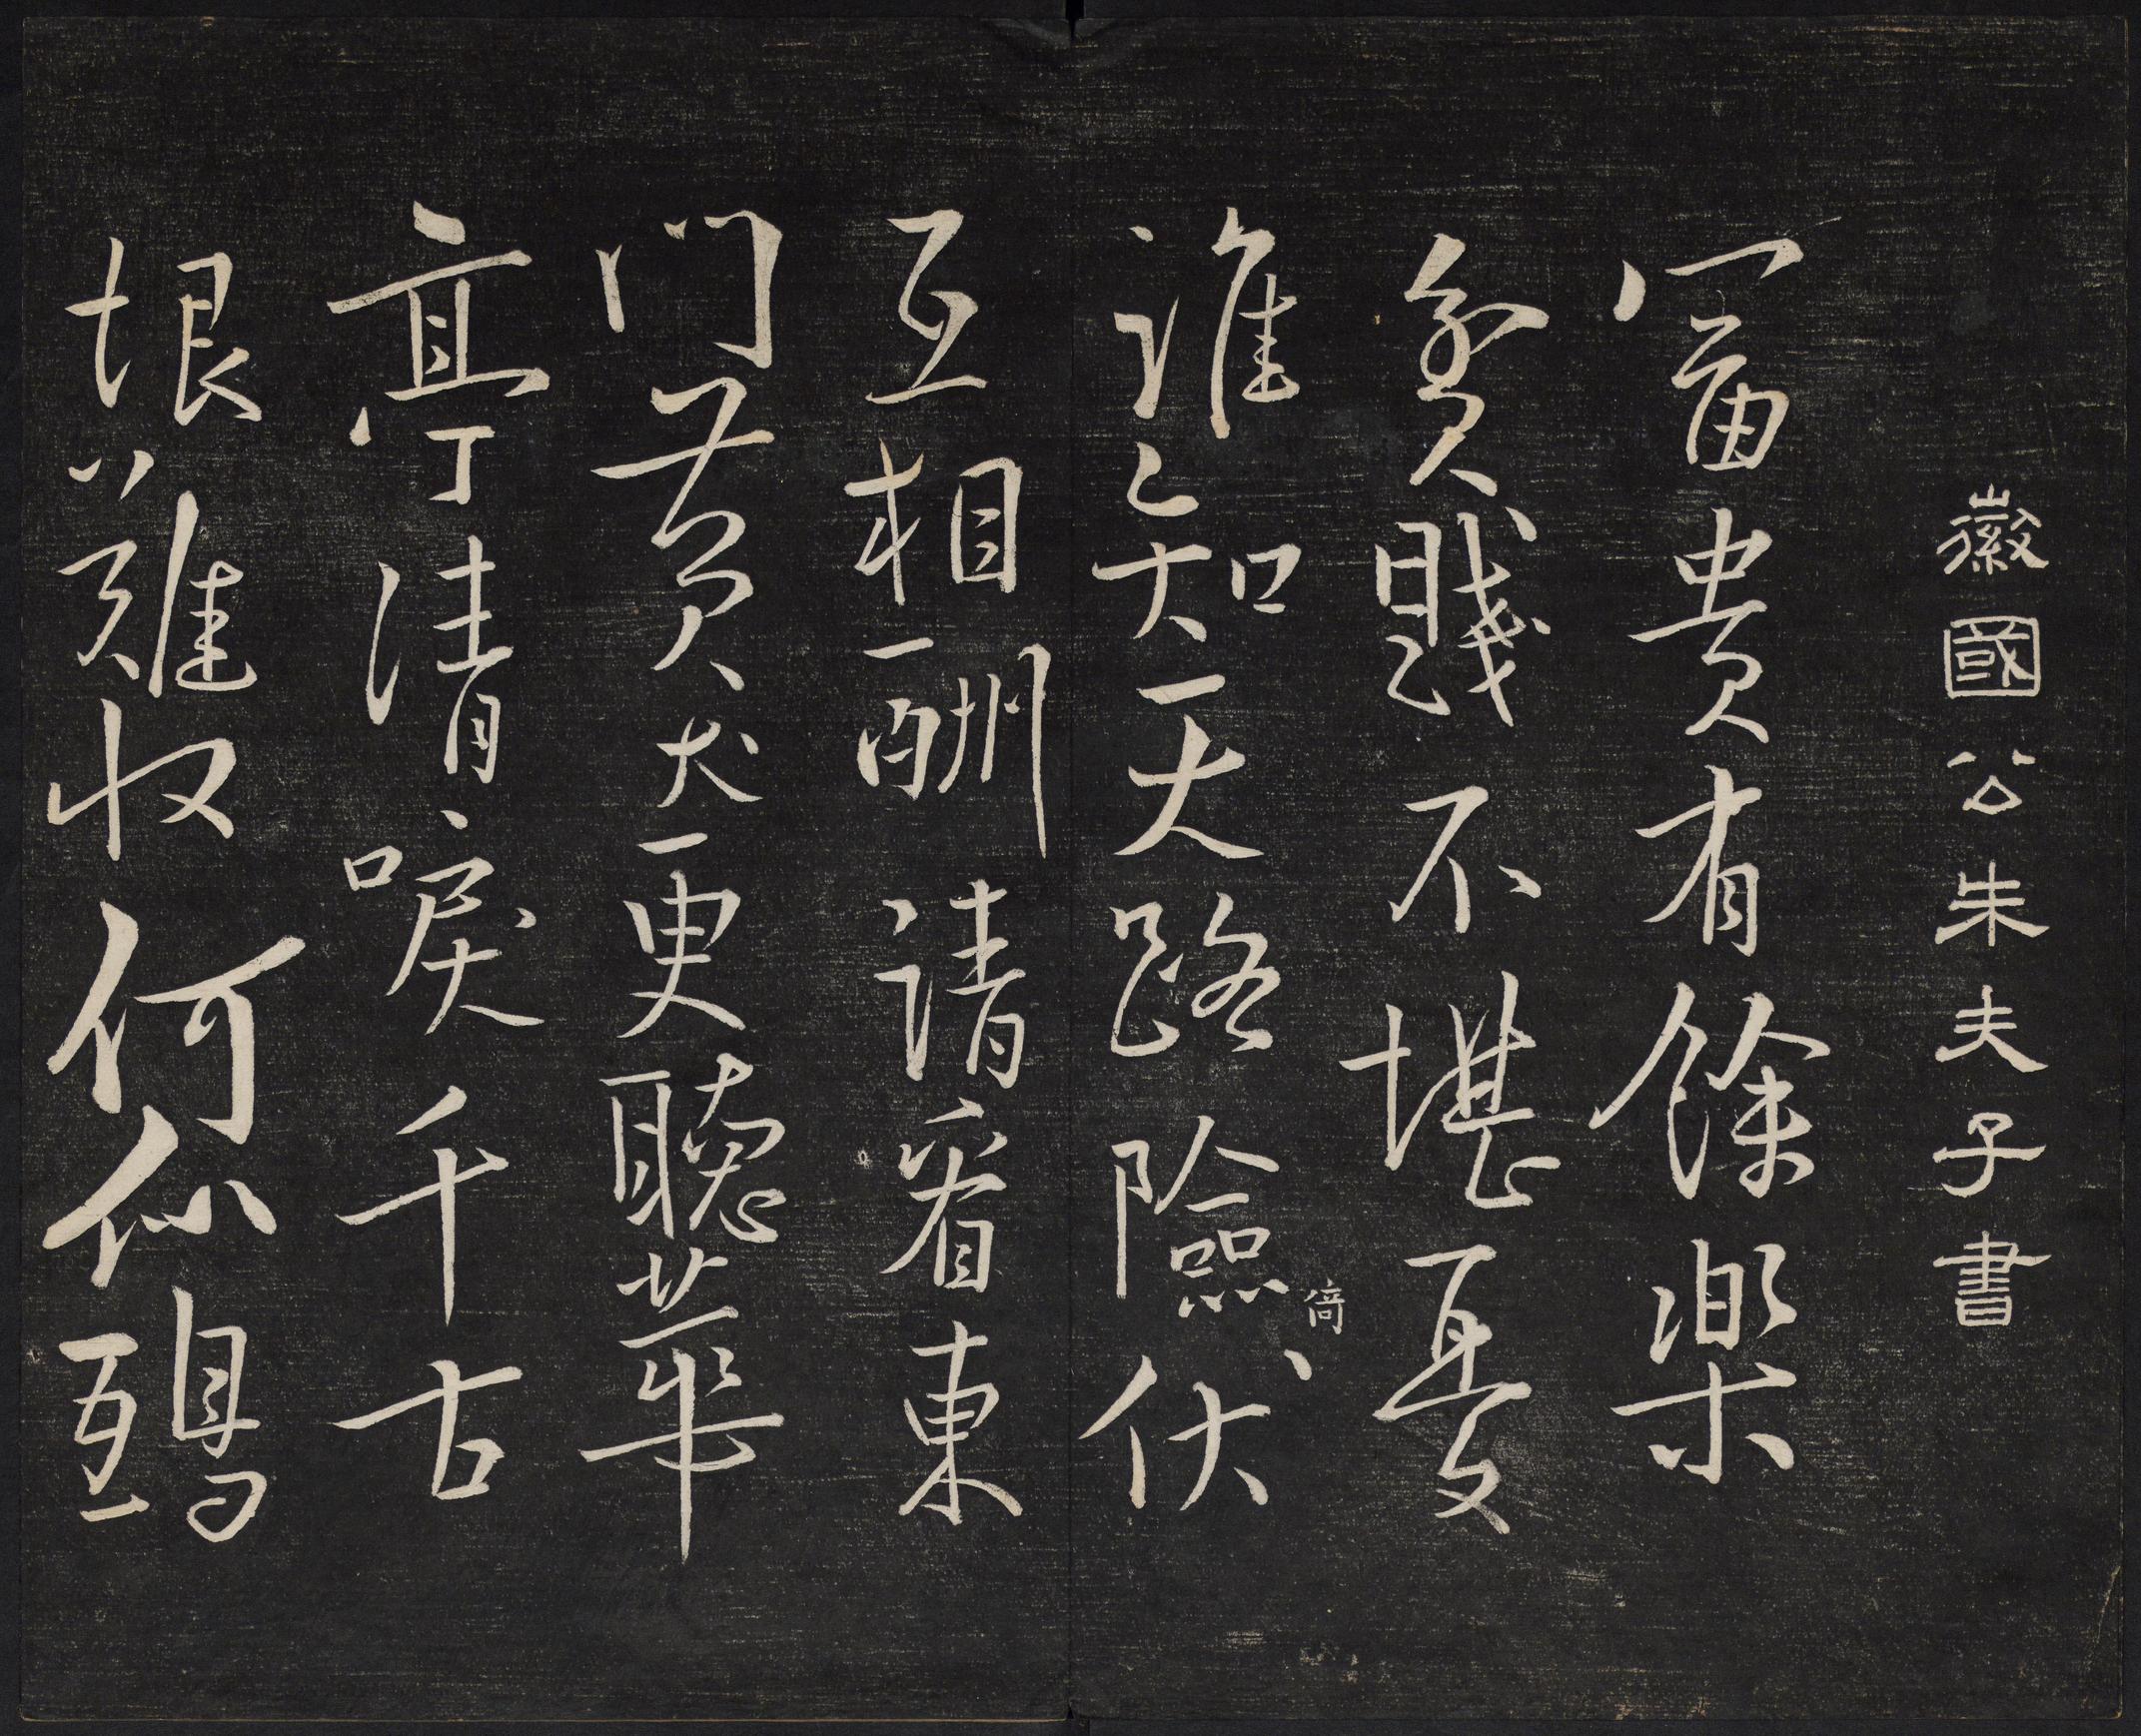 徽國公朱夫子書
富貴有餘樂
貧賤不堪憂
誰知天路險倚伏
互相酬請看東
門黃犬更聽華
亭清唳千古
恨難收何似鴟